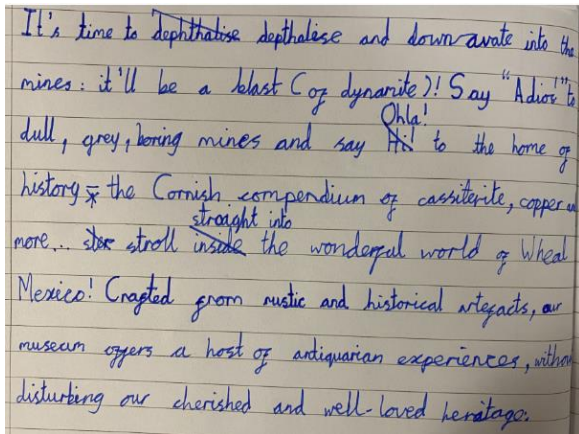 It's time to dephthalise depthalise and downavate into the
mines: it'll be a blast (of dynamite)! Say "Adios!" to
Ohla!
dull, grey, boring mines and say Hi! to the home of
history - the Cornish compendium of cassiterite, copper an
straight into
more... stro stroll inside the wonderful world of Wheal
Mexico! Crafted from rustic and historical artefacts, our
museum offers a host of antiquarian experiences, withou
disturbing our cherished and well-loved heratage.